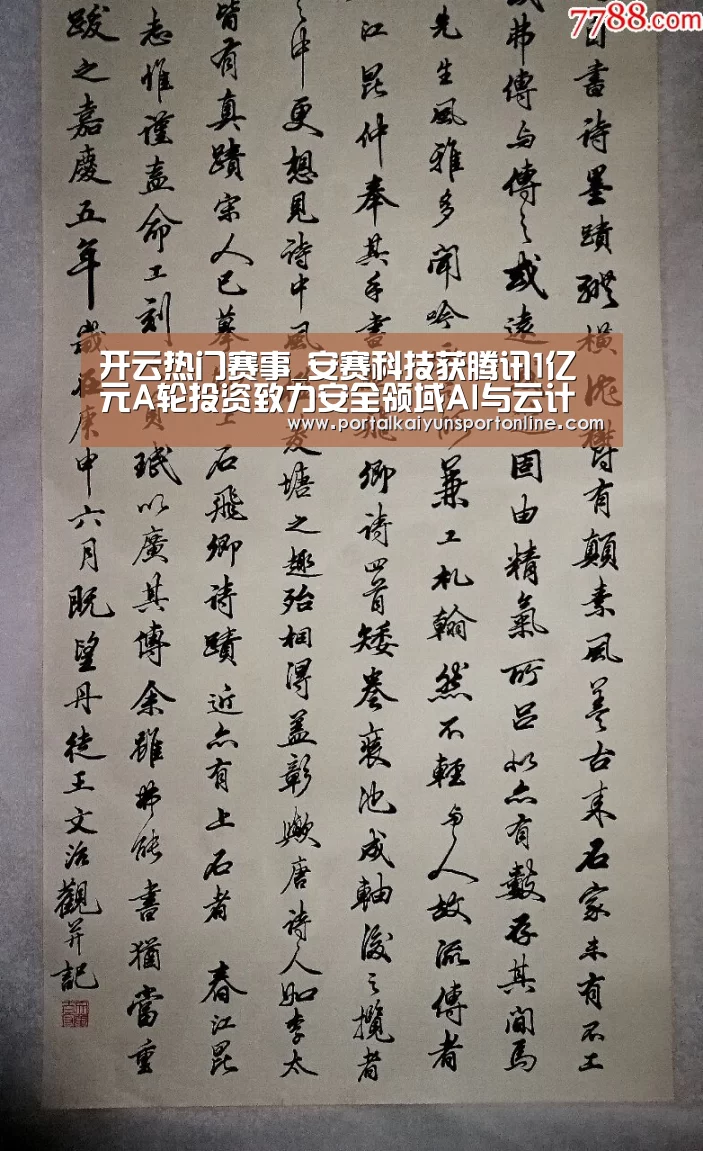 7788.com
自書詩墨蹟縱橫
有顛素風蓋古來名家未有不工
弗傳与傳之或遠
固由精氣所呂以亦有數存其間焉
先生風雅多聞吟
兼工札翰然不輕与人故流傳者
江昆仲奉其手書
卿詩四首矮卷裝池成軸後之攬者
之中更想見詩中風
塘之趣殆相得益彰歟唐詩人如李太
皆有真蹟宋人已摹
上石飛卿詩蹟近亦有上石者春江昆
志惟謹益命工刻
貞珉以廣其傳余雖弗能書猶當重
跋之嘉慶五年歲在庚申六月既望丹徒王文治觀并記
开云热门赛事_安赛科技获腾讯1亿
元A轮投资致力安全领域AI与云计
www.portalkaiyunsportonline.com